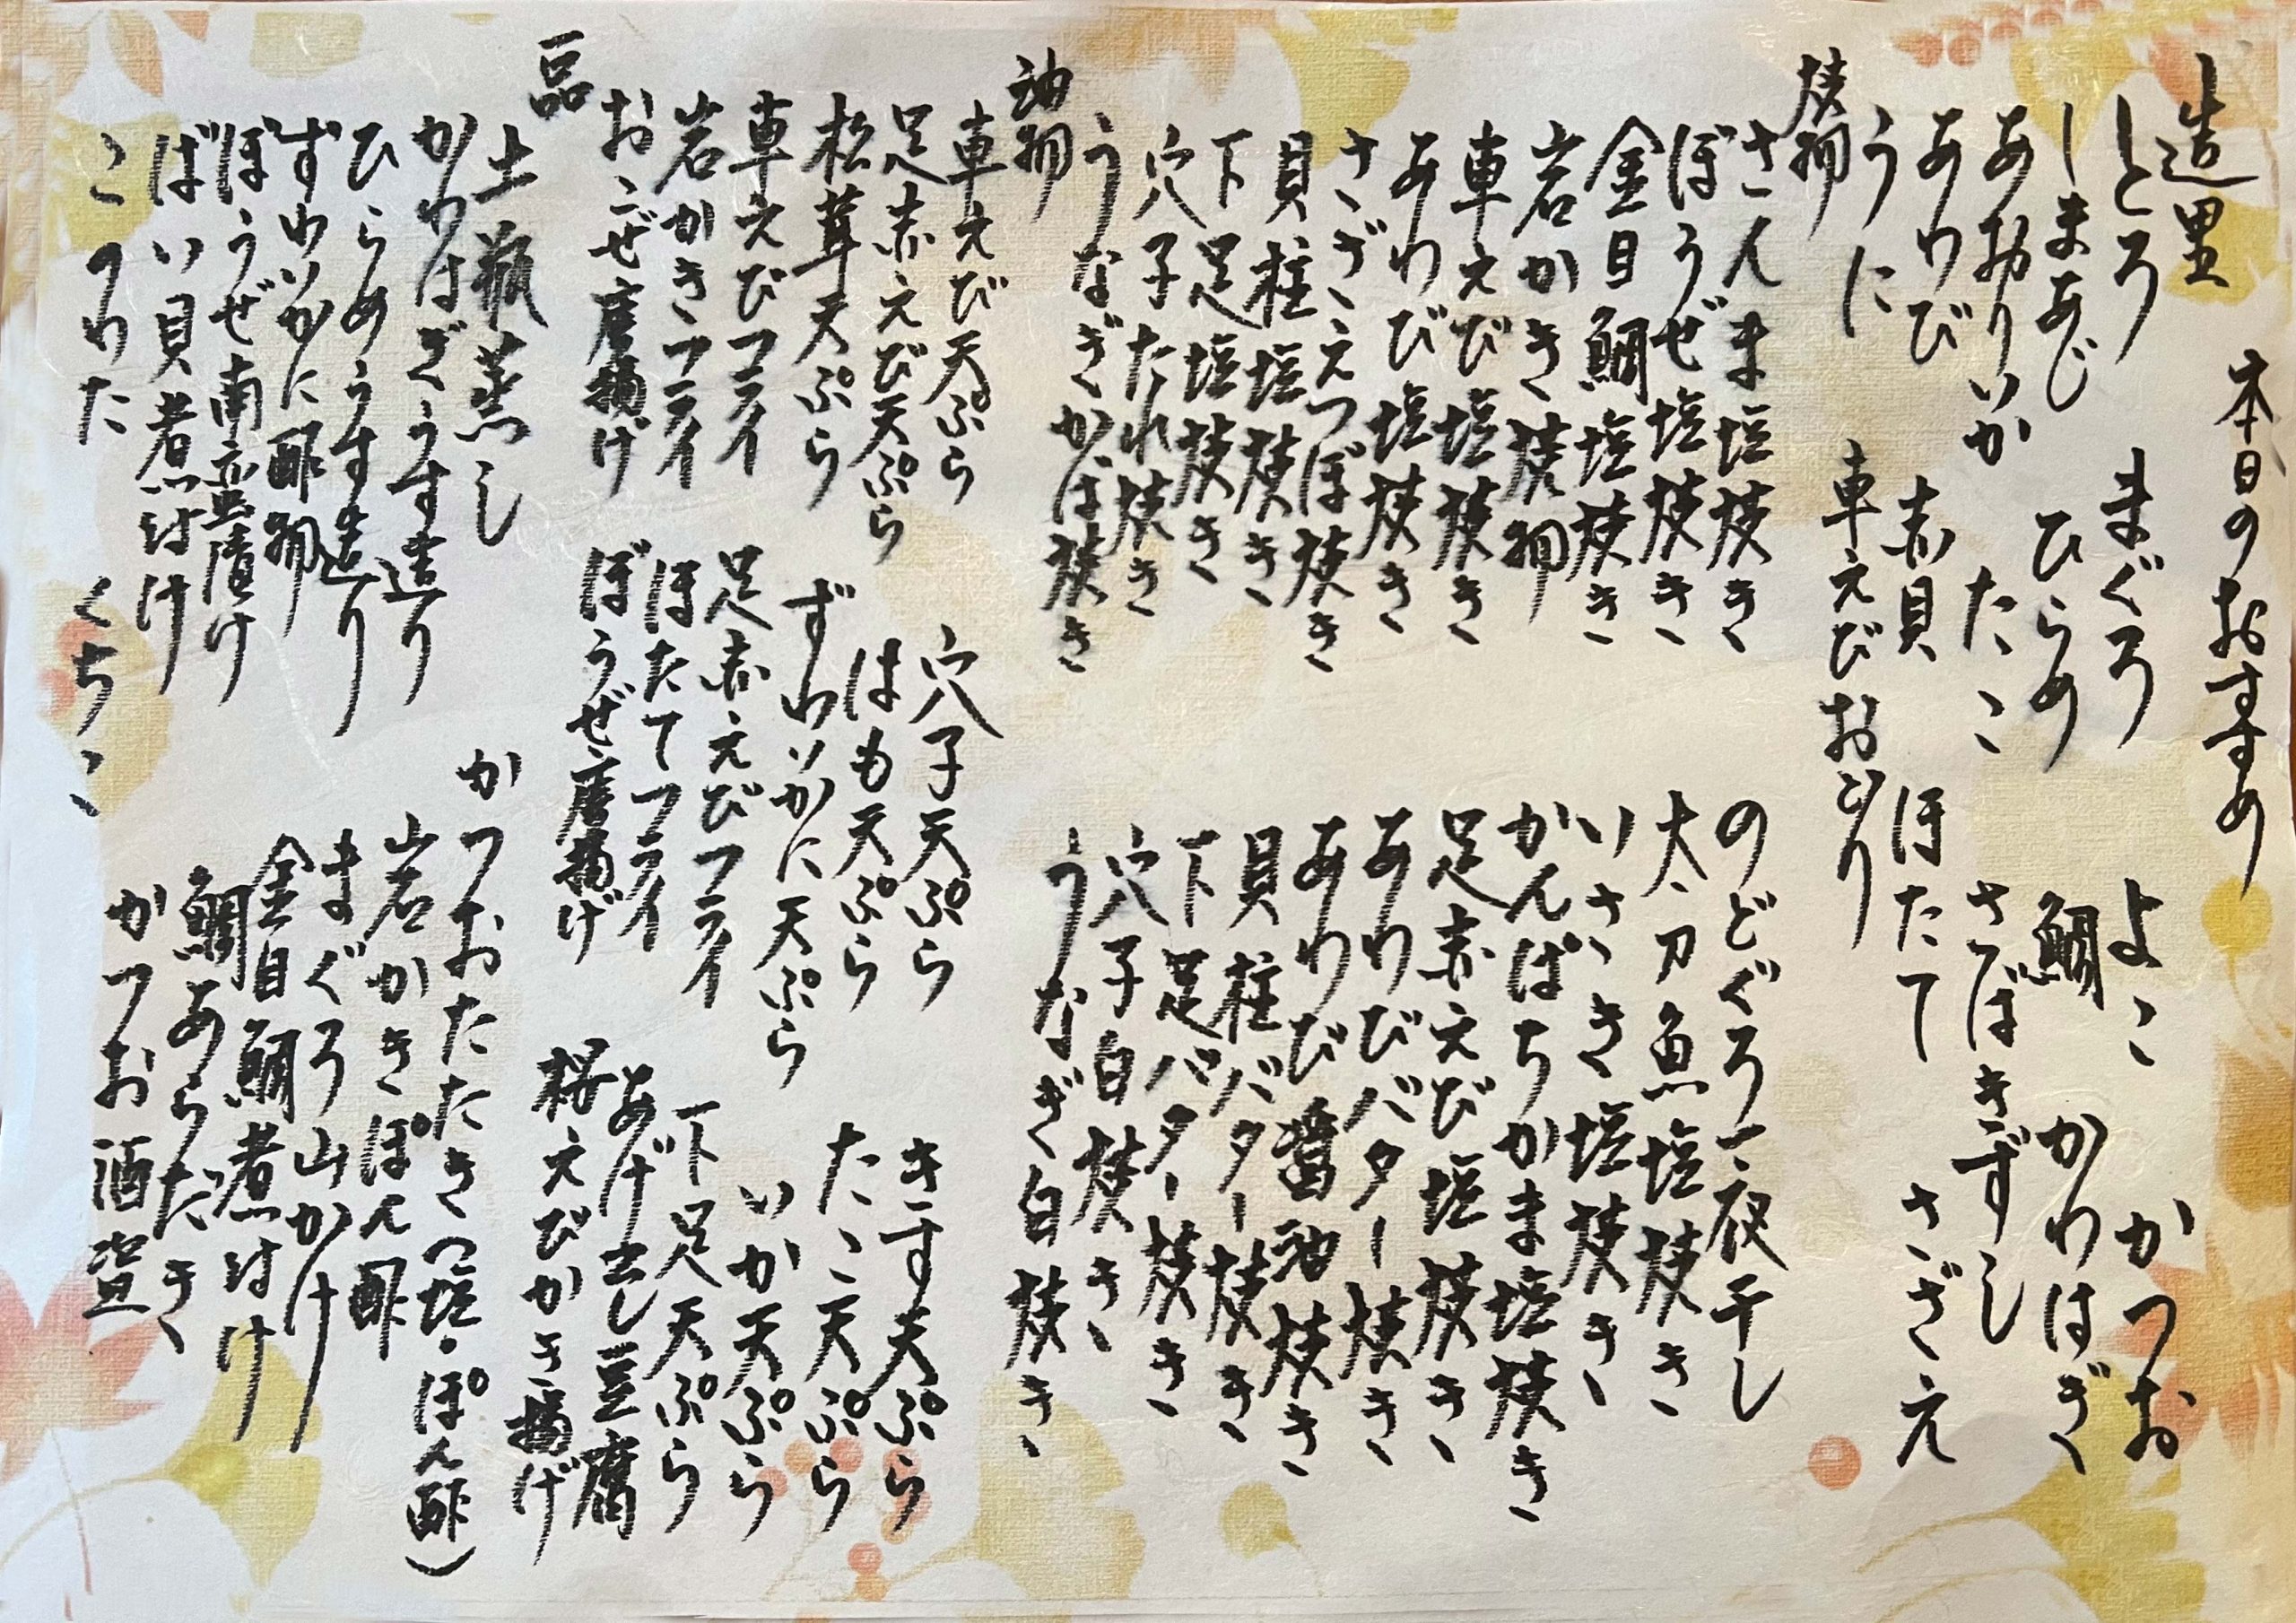 本日のおすすめ
造里
とろ まぐろ よこ かつお
しまあじ ひらめ 鯛 かわはぎ
あおりいか たこ さばきずし
あわび 赤貝 ほたて さざえ
うに 車えびおどり
焼物
さんま塩焼き のどぐろ一夜干し
ぼうぜ塩焼き 太刀魚塩焼き
金目鯛塩焼き いさき塩焼き
岩かき焼物 かんぱちかま塩焼き
車えび塩焼き 足赤えび塩焼き
あわび塩焼き あわびバター焼き
さざえつぼ焼き あわび醤油焼き
貝柱塩焼き 貝柱バター焼き
下足塩焼き 下足バター焼き
穴子たれ焼き 穴子白焼き
うなぎかば焼き うなぎ白焼き
油物
車えび天ぷら 穴子天ぷら きす天ぷら
足赤えび天ぷら はも天ぷら たこ天ぷら
松茸天ぷら ずわいかに天ぷら いか天ぷら
車えびフライ 足赤えびフライ 下足天ぷら
岩かきフライ ほたてフライ あげ出し豆腐
おこぜ唐揚げ ぼうぜ唐揚げ 桜えびかき揚げ
一品
土瓶蒸し かつおたたき（塩・ぽん酢）
かわはぎうす造り 岩かきぽん酢
ひらめうす造り まぐろ山かけ
ずわいかに酢物 金目鯛煮付け
ぼうぜ南蛮漬け 鯛あらだき
ばい貝煮付け かつお酒盗
このわた くちこ